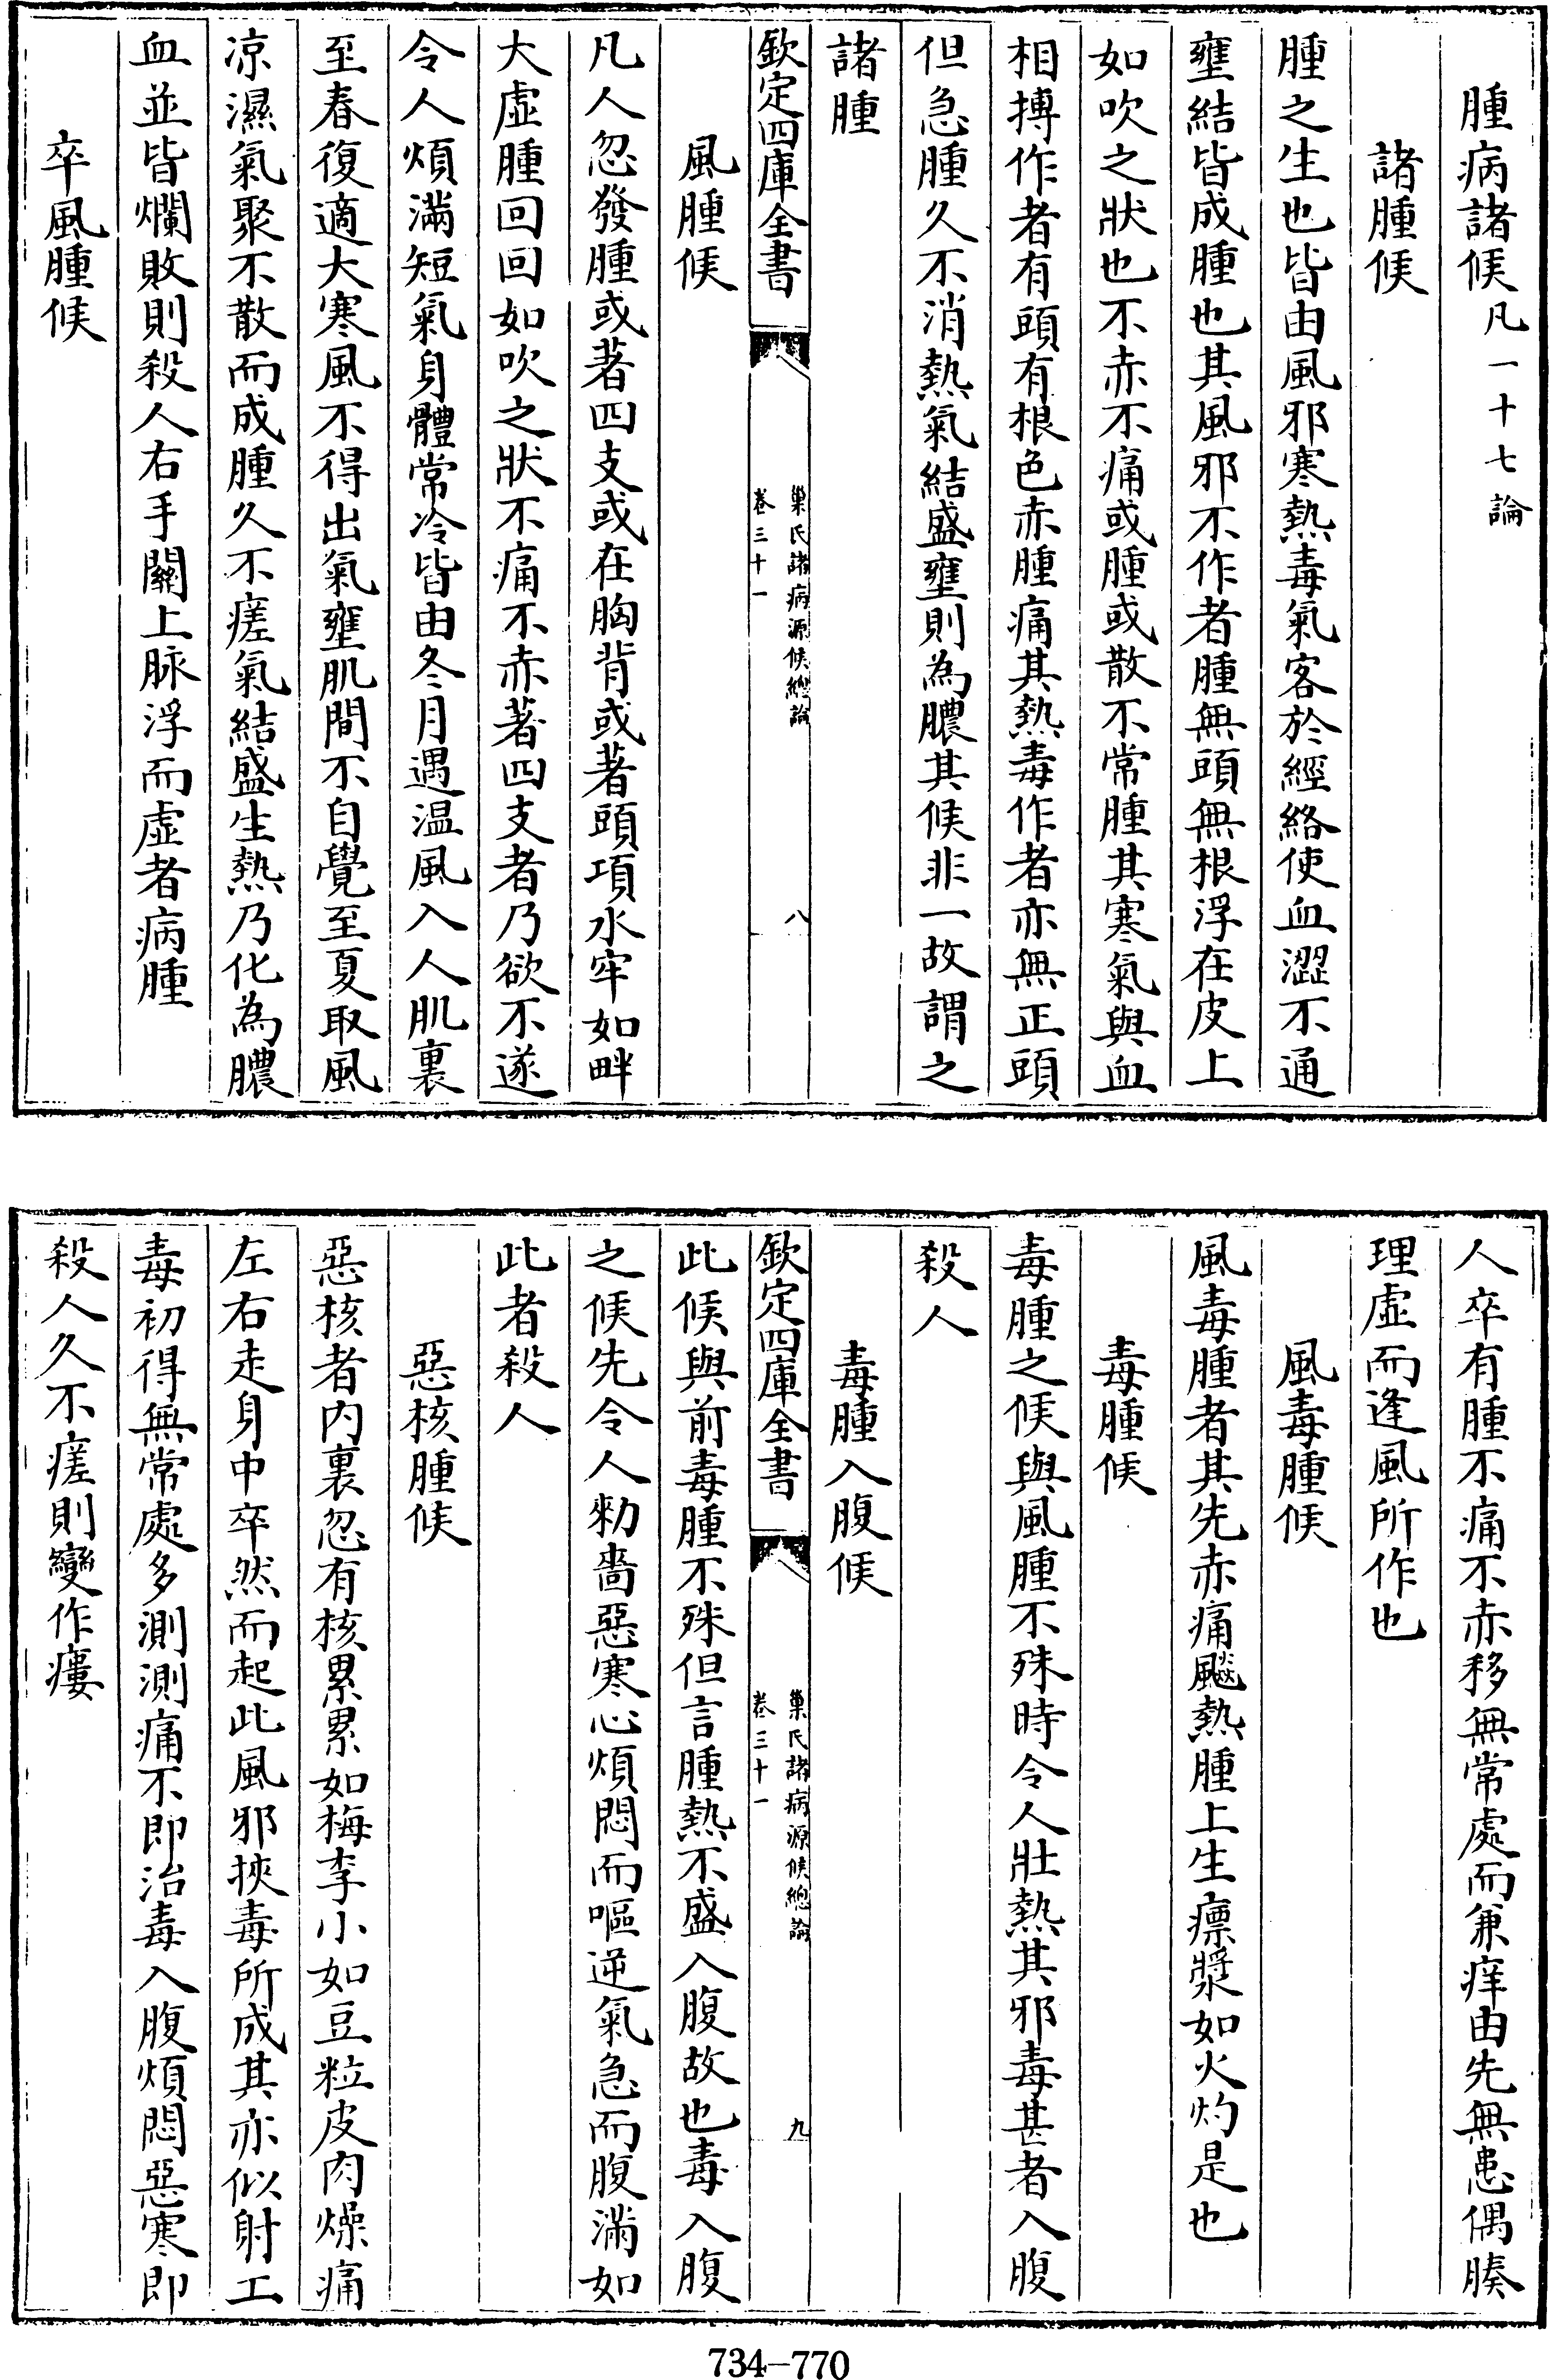 腫病諸候凡一十七論
諸腫候
腫之生也皆由風邪寒熱毒氣客於經絡使血澀不通
壅結皆成腫也其風邪不作者腫無頭無根浮在皮上
如吹之狀也不赤不痛或腫或散不常腫其寒氣與血
相搏作者有頭有根色赤腫痛其熱毒作者亦無正頭
但急腫久不消熱氣結盛壅則為膿其候非一故謂之
諸腫
欽定四庫全書
巢氏諸病源候總論
卷三十一
八
風腫候
凡人忽發腫或著四支或在胸背或著頭項水牢如畔
大虛腫回回如吹之狀不痛不赤著四支者乃欲不遂
令人煩滿短氣身體常冷皆由冬月遇温風入人肌裏
至春復適大寒風不得出氣壅肌間不自覺至夏取風
凉濕氣聚不散而成腫久不瘥氣結盛生熱乃化為膿
血並皆爛敗則殺人右手關上脉浮而虛者病腫
卒風腫候
人卒有腫不痛不赤移無常處而兼痒由先無患偶腠
理虛而逢風所作也
風毒腫候
風毒腫者其先赤痛飈熱腫上生瘭漿如火灼是也
毒腫候
毒腫之候與風腫不殊時令人壯熱其邪毒甚者入腹
殺人
毒腫入腹候
欽定四庫全書
巢氏諸病源候總論
卷三十一
九
此候與前毒腫不殊但言腫熱不盛入腹故也毒入腹
之候先令人勑嗇惡寒心煩悶而嘔逆氣急而腹滿如
此者殺人
惡核腫候
惡核者内裏忽有核累累如梅李小如豆粒皮肉燥痛
左右走身中卒然而起此風邪挾毒所成其亦似射工
毒初得無常處多測測痛不即治毒入腹煩悶惡寒即
殺人久不瘥則變作瘻
734–770